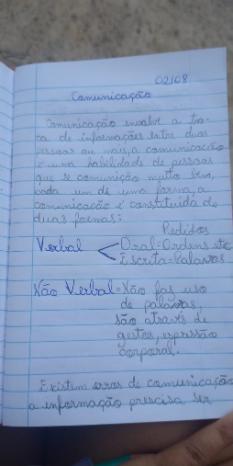 02/08
Comunicação
Comunicação envolve a tro-
ca de informações entre duas
pessoas ou mais, a comunicação
é uma habilidade de pessoas
que se comunicação muito bem,
cada um de uma forma, a
comunicação é constituída de
duas formas:
Pedidos
Verbal < Oral = Ordens etc
Escrita = Palavras
Não Verbal = Não faz uso
de palavras,
são através de
gestos, expressão
corporal.
Existem erros de comunicação
a informação precisa ser